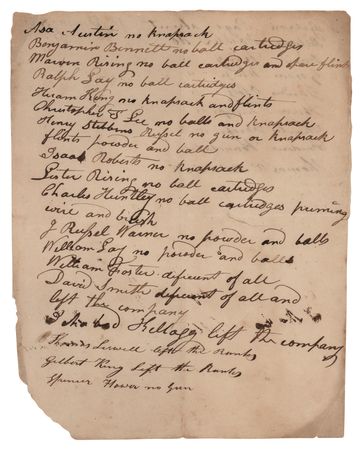 Asa Austin no knapsack
Benjamin Bennett no ball cartridges
Marvin Rising no ball cartridges and spare flints
Ralph Gay no ball cartridges
Hiram King no knapsack and flints
Christopher S Lee no balls and knapsack
Henry Stebbins Russel no gun or knapsack
flints powder and ball
Isaac Roberts no knapsack
Lester Rising no ball cartridges
Charles Huntley no ball cartridges priming
wire and brush
J Russel Warner no powder and balls
William Gay no powder and balls
William Foster deficient of all
David Smith deficient of all and
left the company
Kellogg left the company
Lewell left the Ranks
Gilbert King left the Ranks
Spencer Flower no Gun